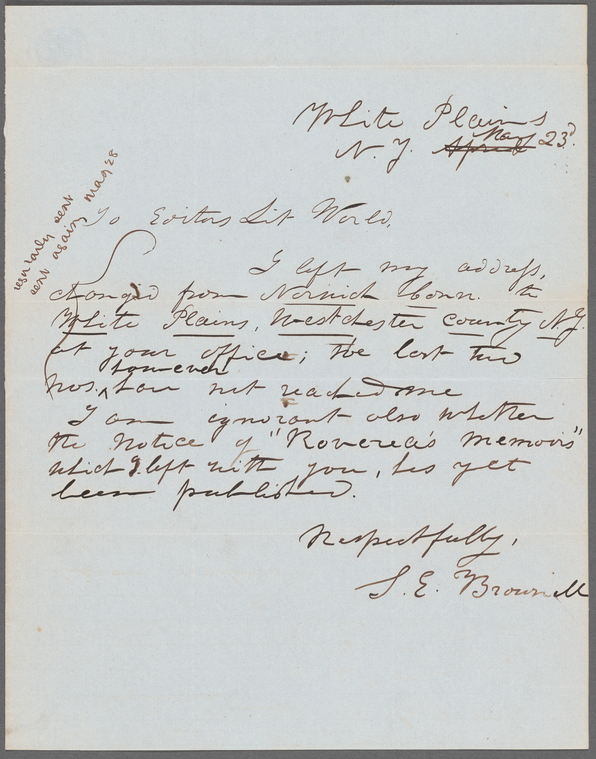 White Plains
N. Y. April May 23d.
regularly sent
sent again May 28
To Editors Lit World,
I left my address,
changed from Norwich Conn. to
White Plains, Westchester County N.Y.
at your office; the last two
nos. however have not reached me
I am ignorant also whether
the Notice of "Rovereas Memoirs"
which I left with you, has yet
been published.
Respectfully,
S. E. Brownell